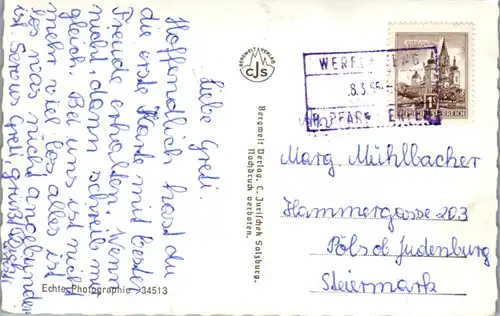 Liebe Gretl.
Hoffendlich hast du
die erste Karte mit bester
Freude erhalten. Wenn
nicht, dann schreib mir
gleich. Bei uns ist nicht
mehr viel los alles ist
los was nicht angebunden
ist Servus Gretl, grüßt dich
Echte Photographie 34513
BERGWELT VERLAG
CJS
Bergwelt Verlag, C. Jurischek Salzburg.
Nachdruck verboten.
WERF
8.3.
PFARR
1S
ÖSTERREICH
Marg. Mühlbacher
Hammergasse 203
Pöls ob Judenburg
Steiermark